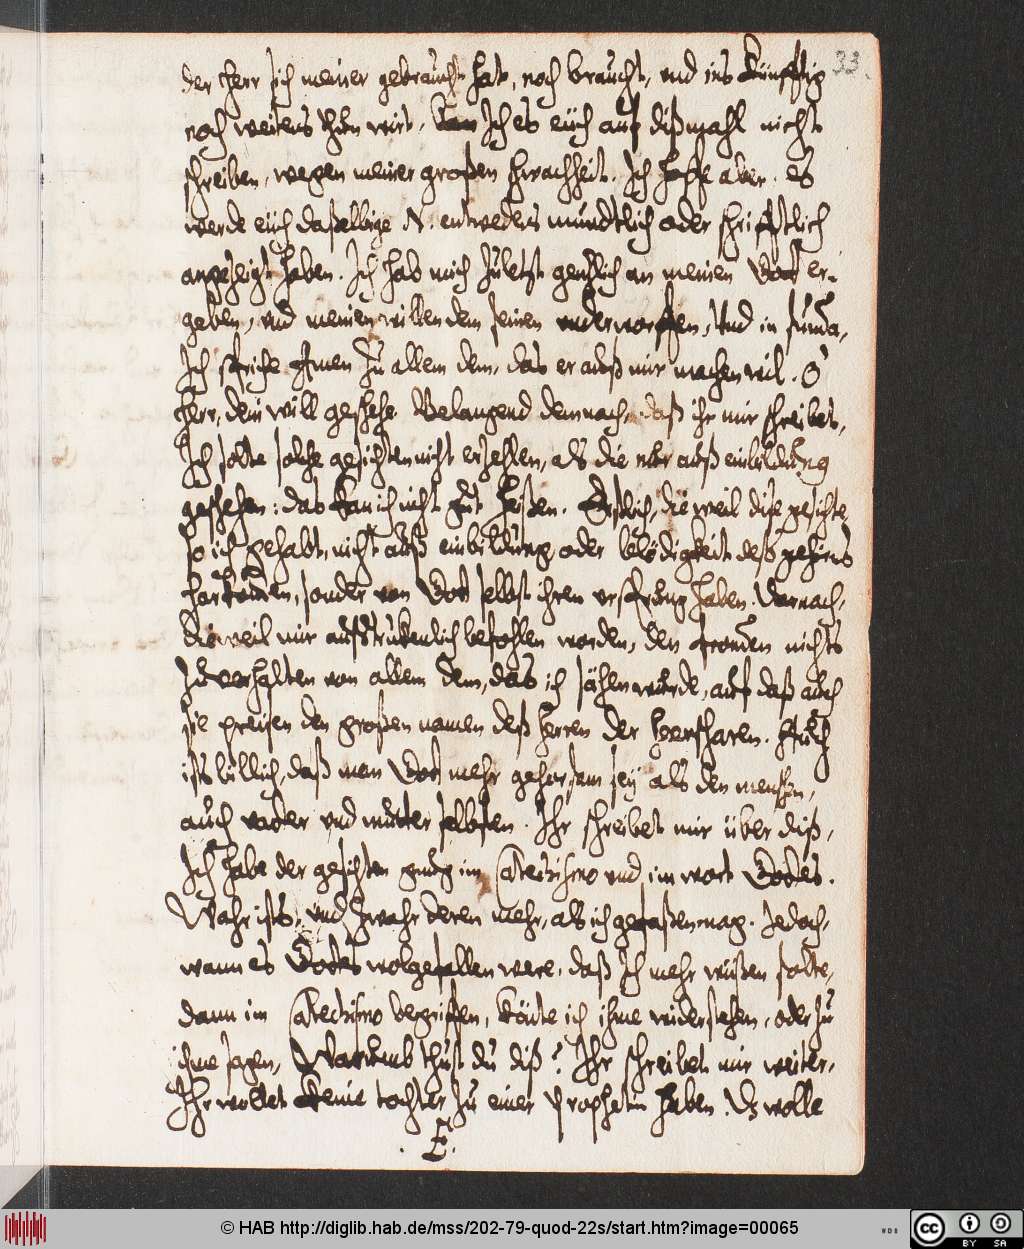 33.
der Herr sich meiner gebraucht hat, noch braucht, vnd ins künfftig
noch weiters thun wirt, kan Ich es eüch auf dißmahl nicht
schreiben, wegen meiner großen schwachheit. Ich hoffe aber, es
werde eüch daßelbige N. entweders mündtlich oder schrifftlich
angezeigt haben. Ich hab mich zuletst gentzlich an meinen Gott er-
geben, vnd meinen willen dem seinen vnderworffen, Vnd in summa,
Ich spriche Amen zu allem dem, das er auß mir machen wil. O
Herr, dein will geschehe. Belangend demnach, daß ihr mir schreibet,
Ich solte solche gesichten nicht erzehlen, als die nur auß einbildung
geschehen: das kan ich nicht gut heißen. Erstlich, dieweil dise gesichte
so ich gehabt, nicht auß einbildung oder blödigkeit deß gehirns
harkomen, sonder von Gott selbst ihren vrsprung haben. Darnach,
dieweil mir aufstrukenlich befohlen worden, den fromen nichts
zu verhalten von allem dem, das ich sähen wurde, auf daß auch
sie preisen den großen namen deß Herren der Heerscharen. Auch
ists billich, daß man Gott mehr gehorsam sey als den menschen,
auch vatter vnd mutter selbsten. Ihr schreibet mir über diß,
Ich habe der gesichten gnug im Catechismo vnd im wort Gottes.
Wahr ists, vnd zwahr deren mehr, als ich gefaßen mag. Jedoch,
wann es Gottes wolgefallen were, daß Ich mehr wüßen solte,
dann im Catechismo begriffen, könte ich ihme widerstehen, oder zu
ihme sagen, Warumb thust du diß? Ihr schreibet mir weiter,
Ihr wollet keine tochter zu einer Prophetin haben. Es wolle
.E.
© HAB http://diglib.hab.de/mss/202-79-quod-22s/start.htm?image=00065
WDB
cc BY SA